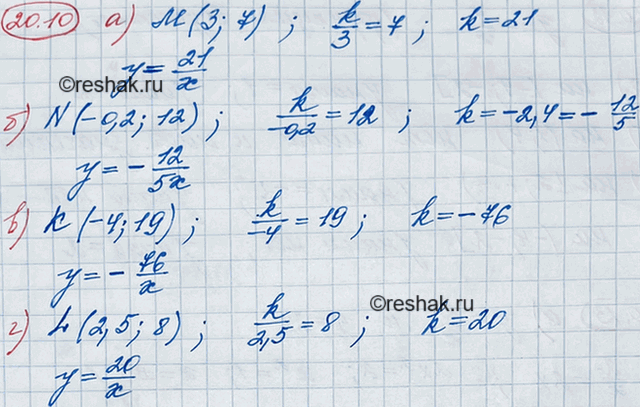 20.10 а) M(3; 7) ; k/3 = 7 ; k = 21
y = 21/x
©reshak.ru
б) N(-0,2; 12) ; k/-0,2 = 12 ; k = -2,4 = - 12/5
y = - 12/5x
в) K(-4; 19) ; k/-4 = 19 ; k = -76
y = - 76/x
©reshak.ru
г) L(2,5; 8) ; k/2,5 = 8 ; k = 20
y = 20/x